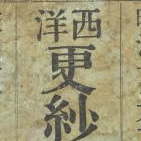 西洋
更紗